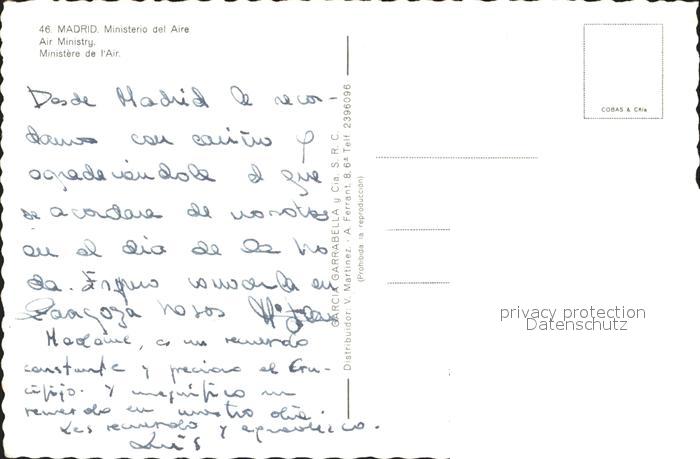 46. MADRID. Ministerio del Aire
Air Ministry.
Ministère de l'Air.
Desde Madrid le recor-
damos con cariño y
agradeciéndole el que
se acordara de nosotros
en el dia de la bo
da. Espero conocerla en
Zaragoza besos
Madame, es un recuerdo
constante y precioso el Cru-
cifijo. Y magnífico un
recuerdo en nuestro día.
Les recuerdo y agradezco.
Luis
GARCIA GARRABELLA y Cia. S. R. C.
Distribuidor: V. Martinez. - A. Ferrant, 8, 6ª Telf. 2396096
(Prohibida la reproducción)
COBAS & Cñía
privacy protection
Datenschutz